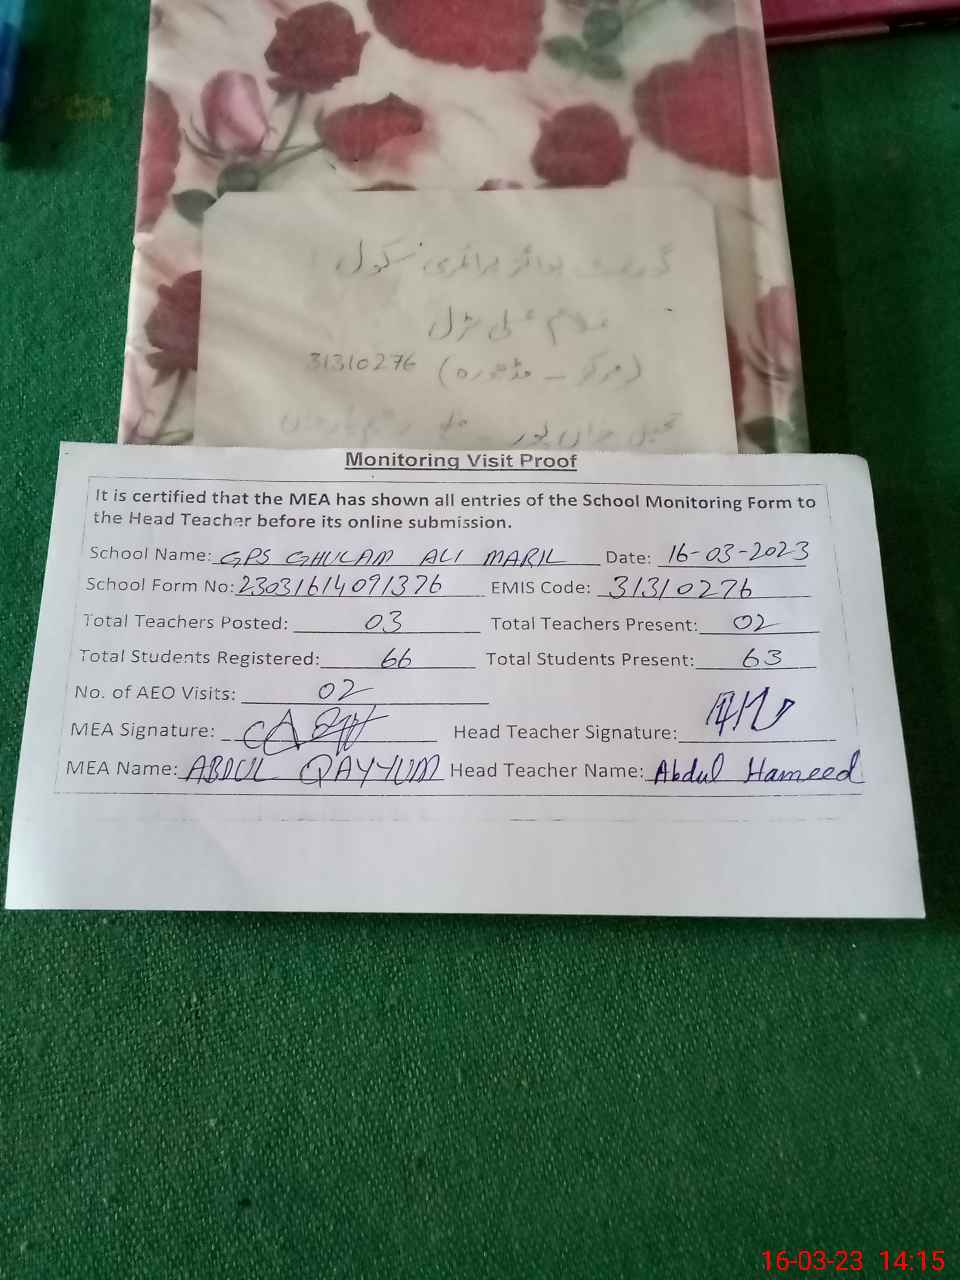 گورنمنٹ بوائز پرائمری سکول
غلام علی مڑل
(مرکز - 31310276
تحصیل خان پور ضلع رحیم یار خان
Monitoring Visit Proof
It is certified that the MEA has shown all entries of the School Monitoring Form to
the Head Teacher before its online submission.
School Name: GPS GHULAM ALI MARIL Date: 16-03-2023
School Form No: 23031614091376 EMIS Code: 31310276
Total Teachers Posted: 03 Total Teachers Present: 02
Total Students Registered: 66 Total Students Present: 63
No. of AEO Visits: 02
MEA Signature: Head Teacher Signature:
MEA Name: ABDUL QAYYUM Head Teacher Name: Abdul Hameed
16-03-23 14:15